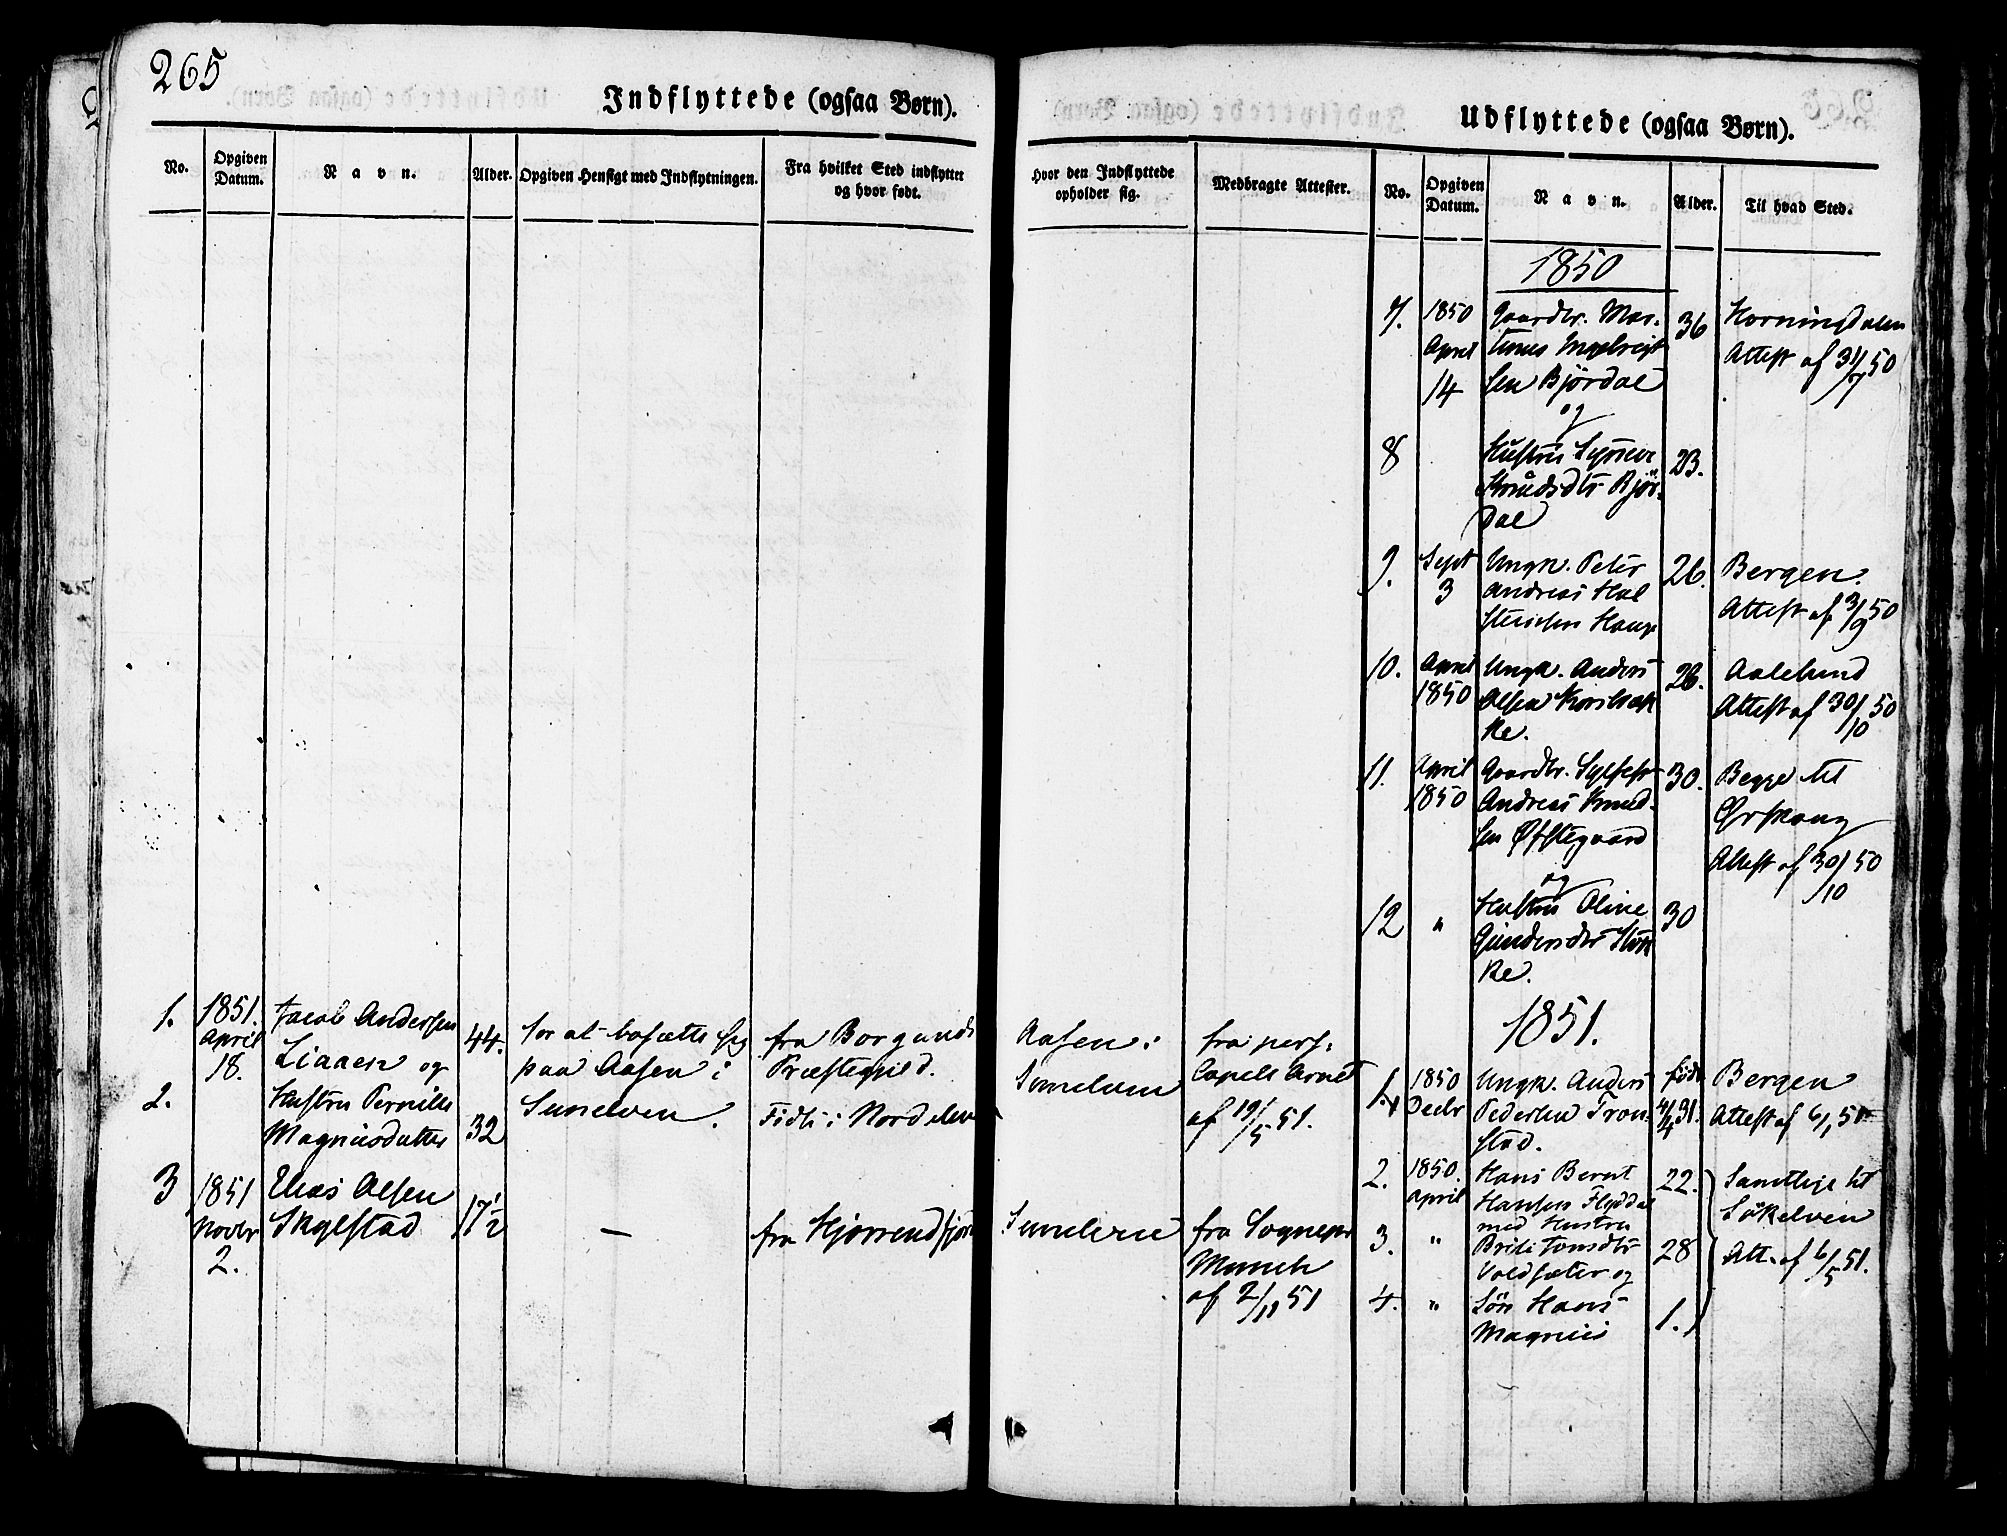 265
Indflyttede (ogsaa Børn).
No.
Opgiven
Datum.
Navn.
Alder.
Opgiven Hensigt med Indflytningen.
Fra hvilket Sted indflyttet
og hvor født.
1.
1851.
April
18.
Jacob Andersen
Liaaen og
44.
for at bosætte sig
paa Aasen i
Sunelven.
fra Borgunds
Præstegield.
Født i Nord
2.
Hustru Pernille
Magnusdatter
32
3
1851
Novbr
2.
Elias Olsen
Skylstad
17 1/2
—
fra Hjørendfjord
Udflyttede (ogsaa Børn).
Hvor den Indflyttede
opholder sig.
Medbragte Attester.
No.
Opgiven
Datum.
Navn.
Alder.
Til hvad Sted.
Aasen i
Sunelven
fra pers:
Capell Arnet
af 19/5 51.
Sunelven
fra Sognepr
Munch
af 2/11 51
1850
7.
1850
April
14
Gaardbr. Mar-
tinus Ingebrigt
sen Bjørdal
og
36
Horningdalen
Attest af 31/7 50
8
Hustru Synneve
Knudsdtr Bjør-
dal
23.
9.
Sept
3
Ungk. Peter
Andreas Hal
steinsen Hauge
26.
Bergen.
Attest af 3/9 50
10.
April
1850
Ungk. Anders
Olsen Korsbræk
ke.
26.
Aalesund
Attest af 30/10 50
11.
April
1850
Gaardbr. Sylfest
Andreas Knud-
sen Øfstegaard
og
30.
Begge til
Ørskoug
Attest af 30/10 50
12
"
Hustru Oline
Gundersdtr Stok
ke.
30
1851.
1.
1850
Decbr
Ungk. Anders
Pedersen Tron-
stad.
født
4/4 31.
Bergen
Attest af 6/1 51
2.
1850.
April
Hans Bernt
Hansen Flydal
med Hustru
22.
Samtlige til
Søkelven
Att. af 6/5 51.
3.
"
Brite Jonsdtr
Voldsæter og
28
4.
"
Søn Hans
Magnus
1.